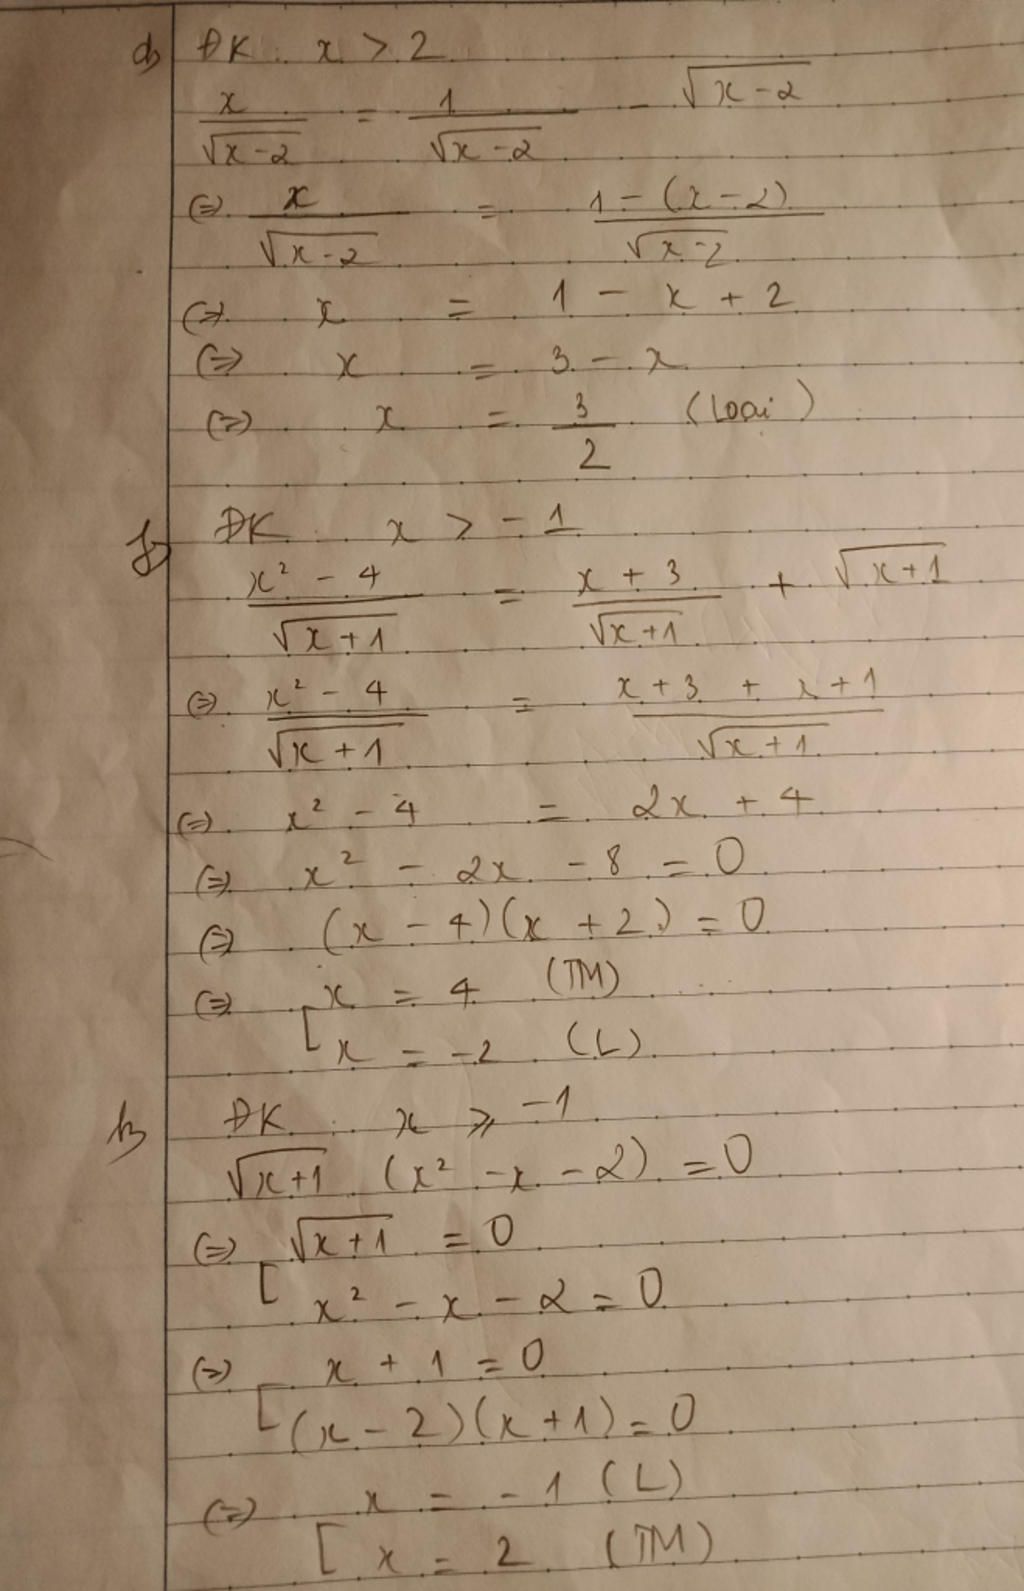 d) ĐK: x > 2
x/√(x-2) = 1/√(x-2) - √(x-2)
(=) x/√(x-2) = (1-(x-2))/√(x-2)
(=) x = 1 - x + 2
(=) x = 3 - x
(=) x = 3/2 (Loại)
f) ĐK: x > -1
(x² - 4)/√(x+1) = (x+3)/√(x+1) + √(x+1)
(=) (x² - 4)/√(x+1) = (x+3 + x+1)/√(x+1)
(=) x² - 4 = 2x + 4
(=) x² - 2x - 8 = 0
(=) (x - 4)(x + 2) = 0
(=) [ x = 4 (TM)
x = -2 (L)
h) ĐK: x ⩾ -1
√(x+1) (x² - x - 2) = 0
(=) [ √(x+1) = 0
x² - x - 2 = 0
(=) [ x + 1 = 0
(x - 2)(x + 1) = 0
(=) [ x = -1 (L)
x = 2 (TM)